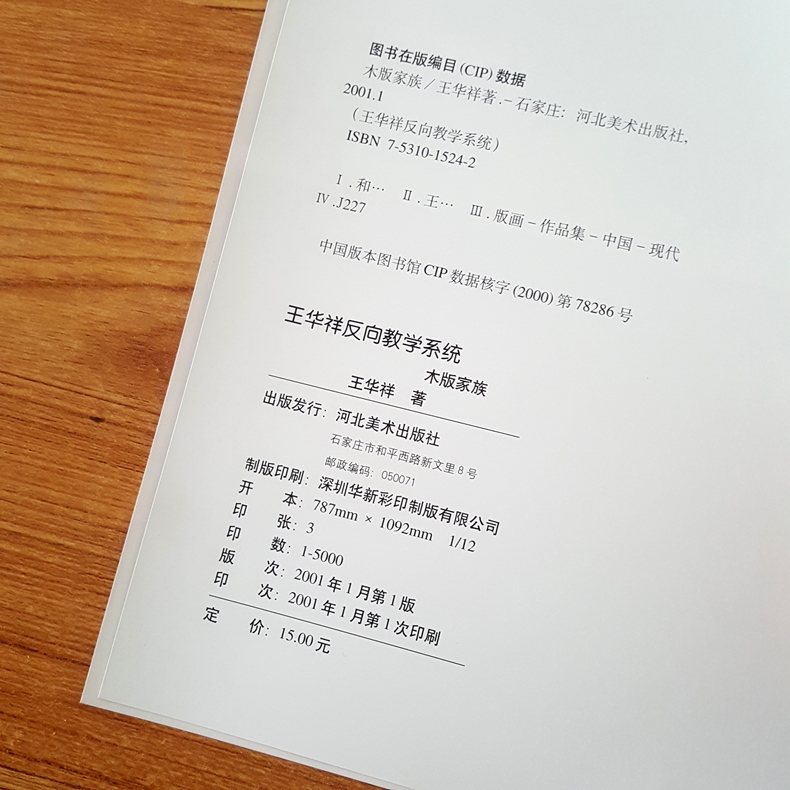 图书在版编目(CIP)数据
木版家族／王华祥著.－石家庄：河北美术出版社，
2001.1
（王华祥反向教学系统）
ISBN 7-5310-1524-2
Ⅰ.和… Ⅱ.王… Ⅲ.版画－作品集－中国－现代
Ⅳ.J227
中国版本图书馆CIP数据核字(2000)第78286号
王华祥反向教学系统
木版家族
王华祥 著
出版发行：河北美术出版社
石家庄市和平西路新文里8号
邮政编码：050071
制版印刷：深圳华新彩印制版有限公司
开 本：787mm × 1092mm 1/12
印 张：3
印 数：1-5000
版 次：2001年1月第1版
印 次：2001年1月第1次印刷
定 价：15.00元